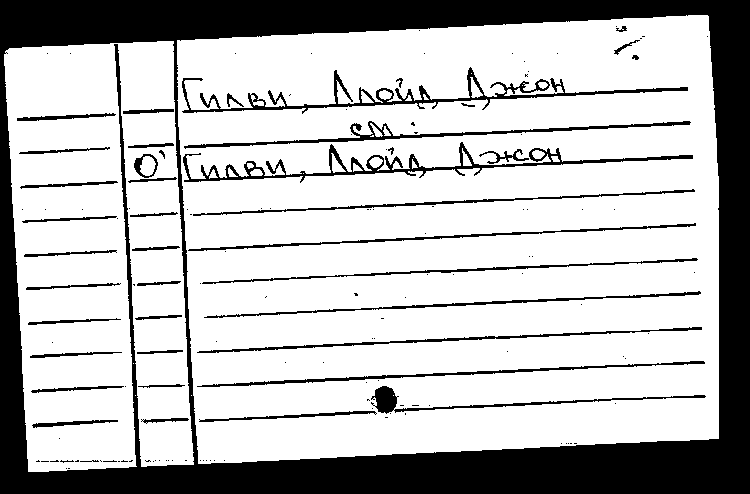 Гилви, Ллойд Джон
см.:
О' Гилви, Ллойд Джон